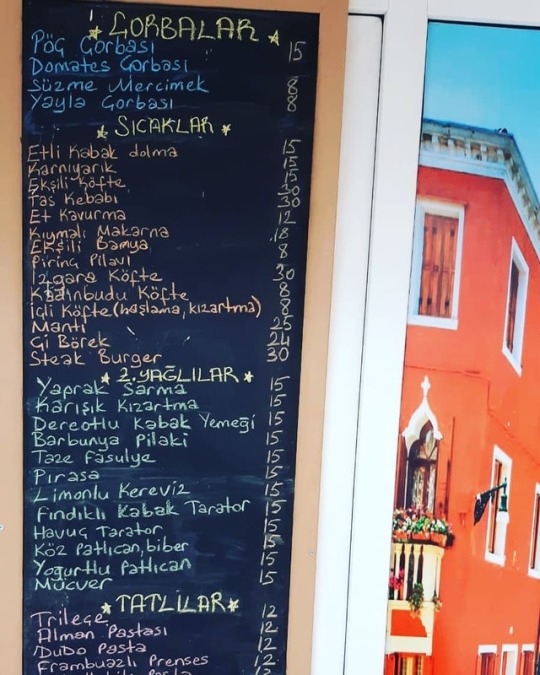 ÇORBALAR
Pöç Çorbası 15
Domates Çorbası
Süzme Mercimek 8
Yayla Çorbası 8
SICAKLAR
Etli Kabak dolma 15
Karnıyarık 15
Ekşili Köfte 15
Tas Kebabı 30
Et Kavurma 30
Kıymalı Makarna 12
Ekşili Bamya 18
Pirinç Pilavı 8
Izgara Köfte 30
Kadınbudu Köfte 8
İçli Köfte (haşlama, kızartma) 8
Mantı 25
Çi Börek 24
Steak Burger 30
Z.YAĞLILAR
Yaprak Sarma 15
Karışık Kızartma 15
Dereotlu Kabak Yemeği 15
Barbunya Pilaki 15
Taze Fasulye 15
Pırasa 15
Limonlu Kereviz 15
Fındıklı Kabak Tarator 15
Havuç Tarator 15
Köz Patlıcan, biber 15
Yoğurtlu Patlıcan 15
Mücver 15
TATLILAR
Trileçe 12
Alman Pastası 12
Dubo Pasta 12
Frambuazlı Prenses 12